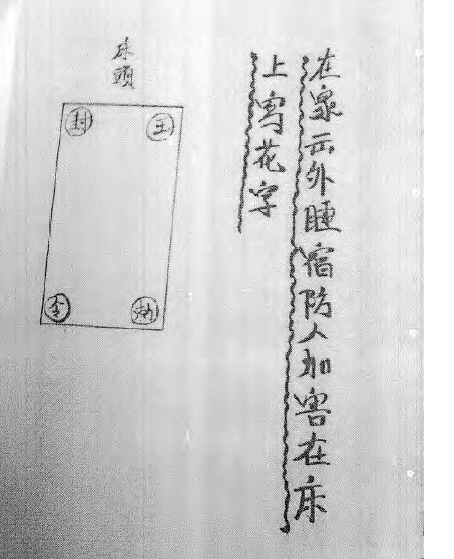 在家外睡宿防人加害在床
上写花字
床頭
封 玉
勅